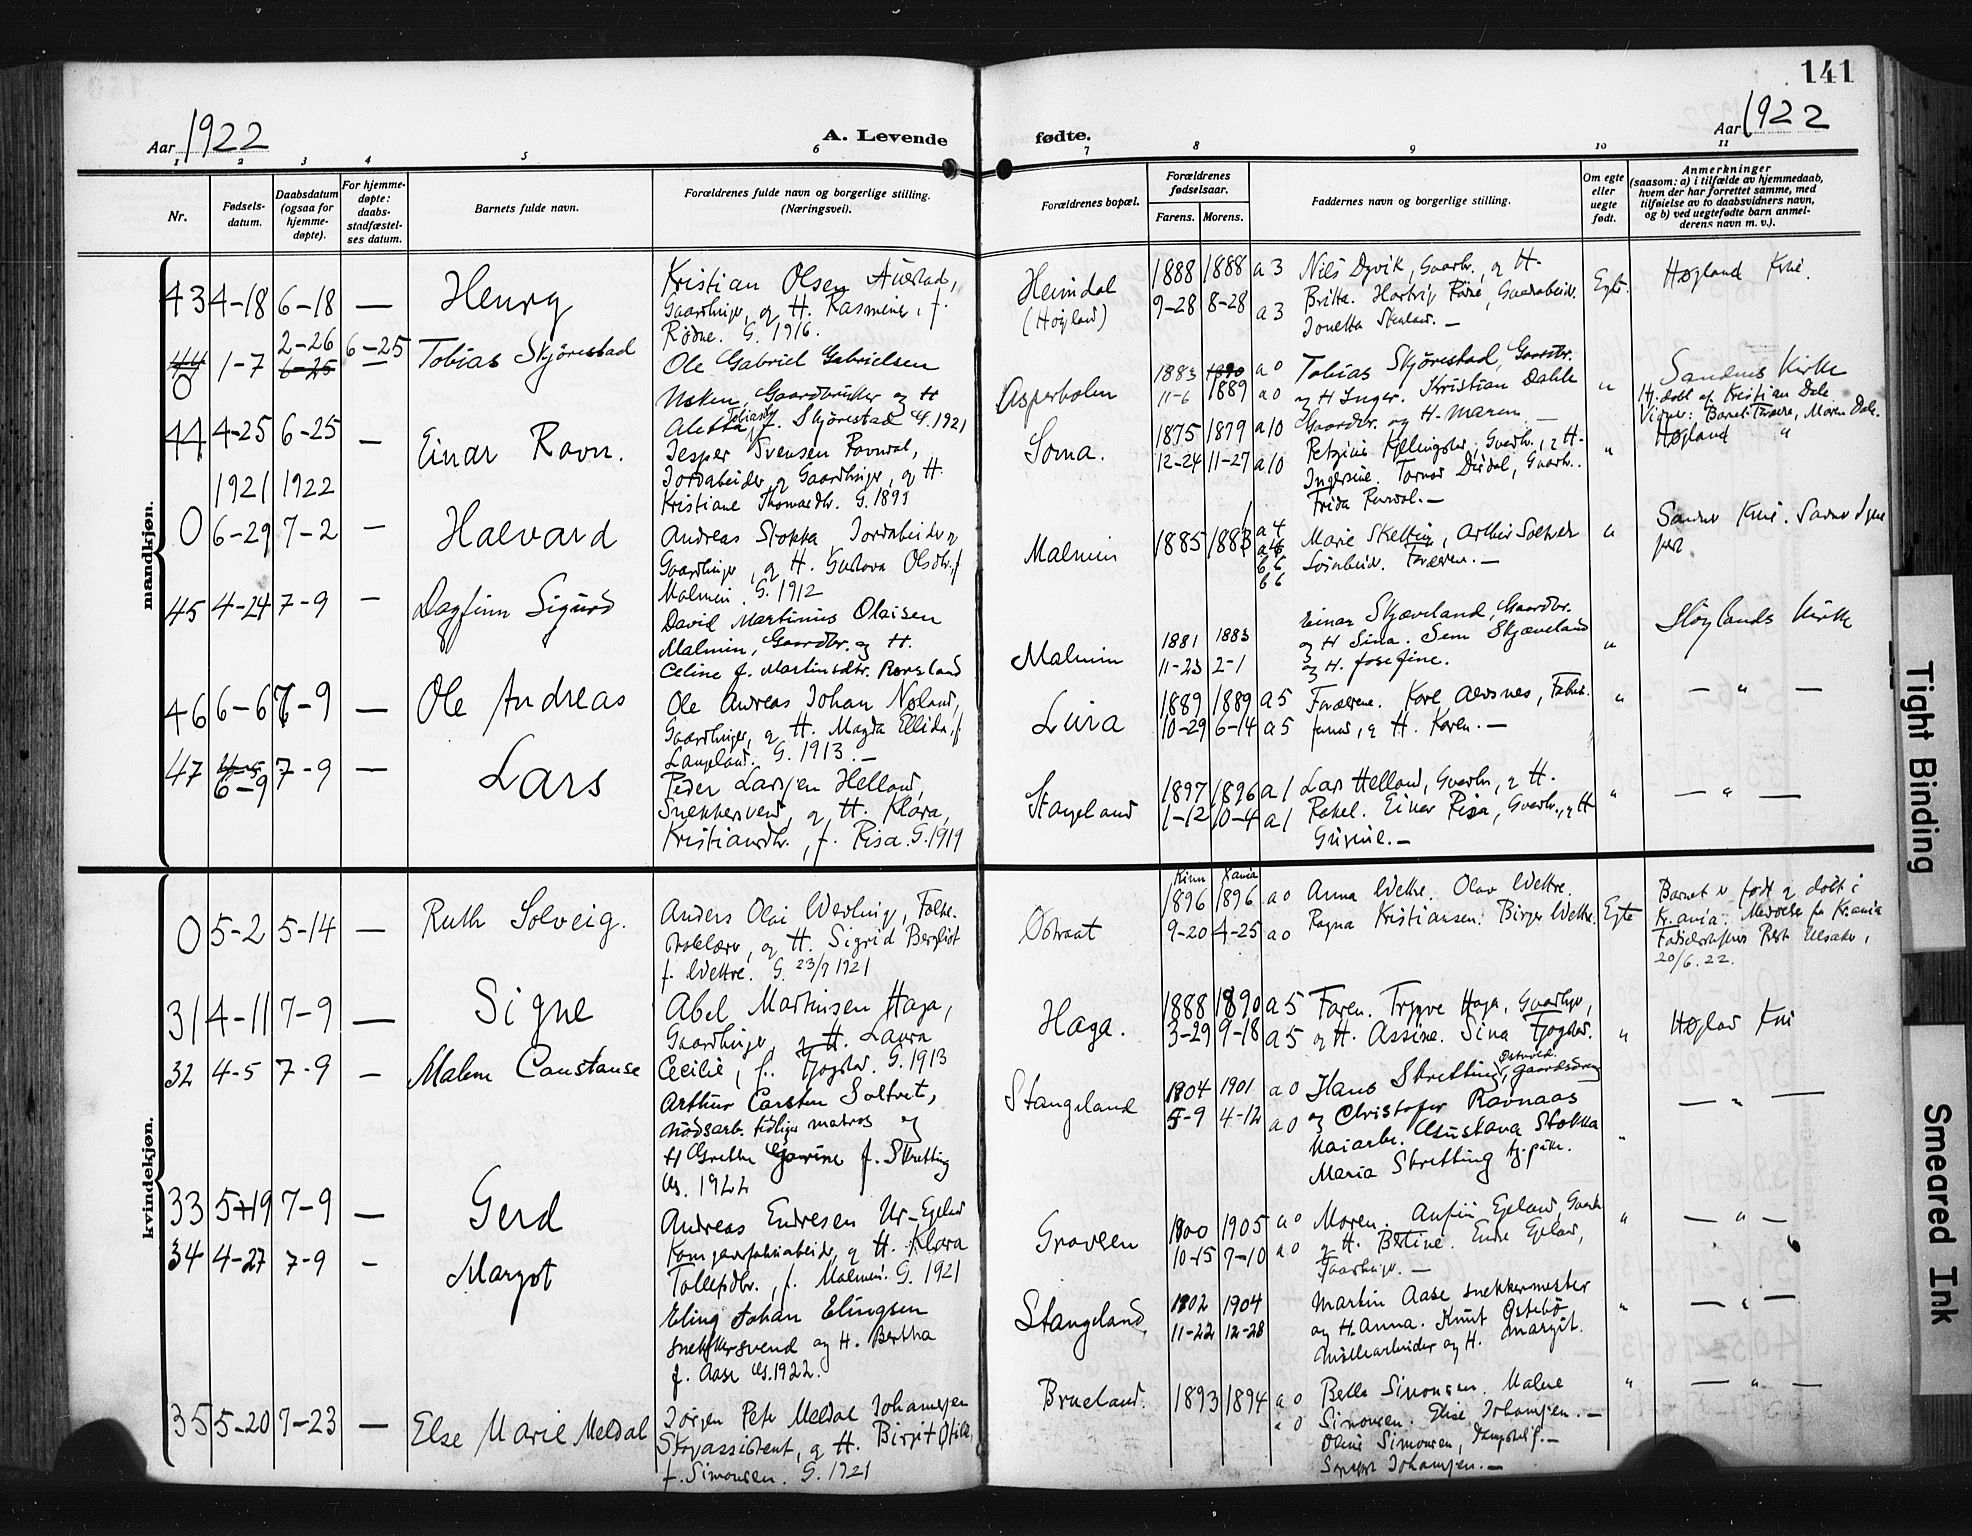 141
Aar 1922
A. Levende
fødte.
Aar 1922
1 2 3 4 5 6 7 8 9 10 11
Nr.
Fødsels-
datum.
Daabsdatum
(ogsaa for
hjemme-
døpte).
For hjemme-
døpte:
daabs-
stadfæstel-
ses datum.
Barnets fulde navn.
Forældrenes fulde navn og borgerlige stilling.
(Næringsvei).
Forældrenes bopæl.
Forældrenes
fødselsaar.
Farens. Morens.
Faddernes navn og borgerlige stilling.
Om egte
eller
uegte
født.
Anmerkninger
(saasom: a) i tilfælde av hjemmedaab,
hvem der har forrettet samme, med
tilføielse av to daabsvidners navn,
og b) ved uegtefødte barn anmel-
derens navn m. v.).
mandkjøn.
43 4-18 6-18 — Henry
Kristian Olsen Austad,
Gaardbruger, og H. Rasmine, f.
Rødne. G. 1916.
Heimdal
(Høyland)
1888 1888 a 3
9-28 8-28 a 3
Nils Dyvik, Gaardbr., og H.
Britta.
Egte.
Høyland Kirke.
44
0 1-7 2-26 6-25 6-25 — Tobias Skjørestad
Ole Gabriel Gabrielsen
Gaardbruker og H
Aletta Tobiasdtr. f. Skjørestad G. 1921
Asperholen
1883 1890 a 0
11-6 1889 a 0
Tobias Skjørestad, Gaardbr.
og H Inger. Kristian Dahle
Gaardbr. og H. Maren —
"
Sandnes Kirke
Hj. døbt af Kristian Dale.
44 4-25 6-25 — Einar Ravn.
Jesper Svensen Ravndal,
Jordarbeider og Gaardbruger, og H.
Kristiane Thomasdtr. G. 1899
Soma.
1875 1879 a 10
12-24 11-27 a 10
Frida Ravndal. —
"
Høyland "
1921 1922
0 6-29 7-2 — Halvard
Andreas Stokka Jordarbeider og
Gaardbruger, og H. Gustava Olsdtr. f.
Malmin. G. 1912
Malmin
1885 1883 a 4
Marie Skretting, Arthur Soltvet
"
45 4-24 7-9 — Dagfinn Sigurd
David Martinius Olaisen
Malmin, Gaardbr. og H.
Celine f. Martinsdtr. Rørsland
Malmin
1881 1883
11-23 2-1
Einar Skjæveland, Gaardbr.
og H Sina. Sem Skjæveland
og H. Josefine.
"
Høylands Kirke
46 6-6 7-9 — Ole Andreas
Ole Andreas Johan Nøland,
Gaardbruger, og H. Magda Ellida, f.
Langeland. G. 1913. —
Lura
1889 1889 a 5
10-29 6-14 a 5
og H. Karen. —
"
— " —
47 4-5 6-9 7-9 — Lars
Peder Larsen Helland,
Snekkersvend, og H. Klara,
Kristiansdtr., f. Risa. G. 1919
Stangeland
1897 1896 a 1
1-12 10-4 a 1
Lars Helland, Gaardbr., og H.
Rakel. Einar Risa, Gaardbr., og H
"
— " —
kvindekjøn.
0 5-2 5-14 — Ruth Solveig.
Anders Olai Wedling,
og H. Sigrid Bergliot
f. Wettre. G. 23/7 1921
Ostraat
Kinn Xania
1896 1896 a 0
9-20 4-25 a 0
Anna Wettre. Olav Wettre.
Ragna Kristiansen. Birger Wettre.
Egte
Barnet er født og døbt i
Kr.ania. Meddelse fra Kr.ania
20/6. 22.
31 4-11 7-9 — Signe
Abel Martinsen Haga,
Gaardbruger, og H. Laura
Cecilie, f. Fjogstad. G. 1913
Haga.
1888 1890 a 5
3-29 9-18 a 5
Faren. Trygve Haga, Gaardbruger,
og H. Assine. Sina Fjogstad.
"
Høyland Kirke
32 4-5 7-9 — Malene Constanse
Arthur Carsten Soltvet,
nødsarb. tidliger matros og
H Grethe f. Skretting
G. 1922
Stangeland
1904 1901 a 0
5-9 4-12 a 0
Hans Skretting, Østvold. Gaardsdreng
og Christofer Ravnaas
Gustava Stokka
Maria Skretting tj.pike.
"
— " —
33 5-19 7-9 — Gerd
Andreas Endresen Ur-Egeland
og H. Klara
Tollefsdtr., f. Malmin. G. 1921
Gravaren
1900 1905 a 0
10-15 7-10 a 0
Moren. Anfin Egeland, Gaardbr.
og H. Bertine. Endre Egeland,
Gaardbruger. —
"
— " —
34 4-27 7-9 — Margot
Eling Johan Elingsen
snekkersvend og H. Bertha
f. Aase G. 1922.
Stangeland
1902 1904
11-22 12-28
Martin Aase snekkermester
og H. Anna. Knut Østebø
Møllearbeider og H. Margit.
"
— " —
35 5-20 7-23 — Else Marie Meldal
Jørgen Peter Meldal Johannesen
Skogassistent, og H. Birgit Otilie,
f. Simonsen. G. 1921
Brueland.
1893 1894 a 0
a 0
Bella Simonsen. Malene
Simonsen. Elise Johannesen. —
Olene Simonsen,
Johannesen. —
"
— " —
Tight Binding
Smeared Ink